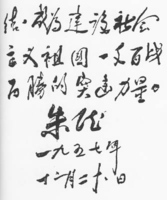 结，成为建设社会
主义祖国一支百战
百胜的突击力量。
朱德
一九五七年
十一月二十八日